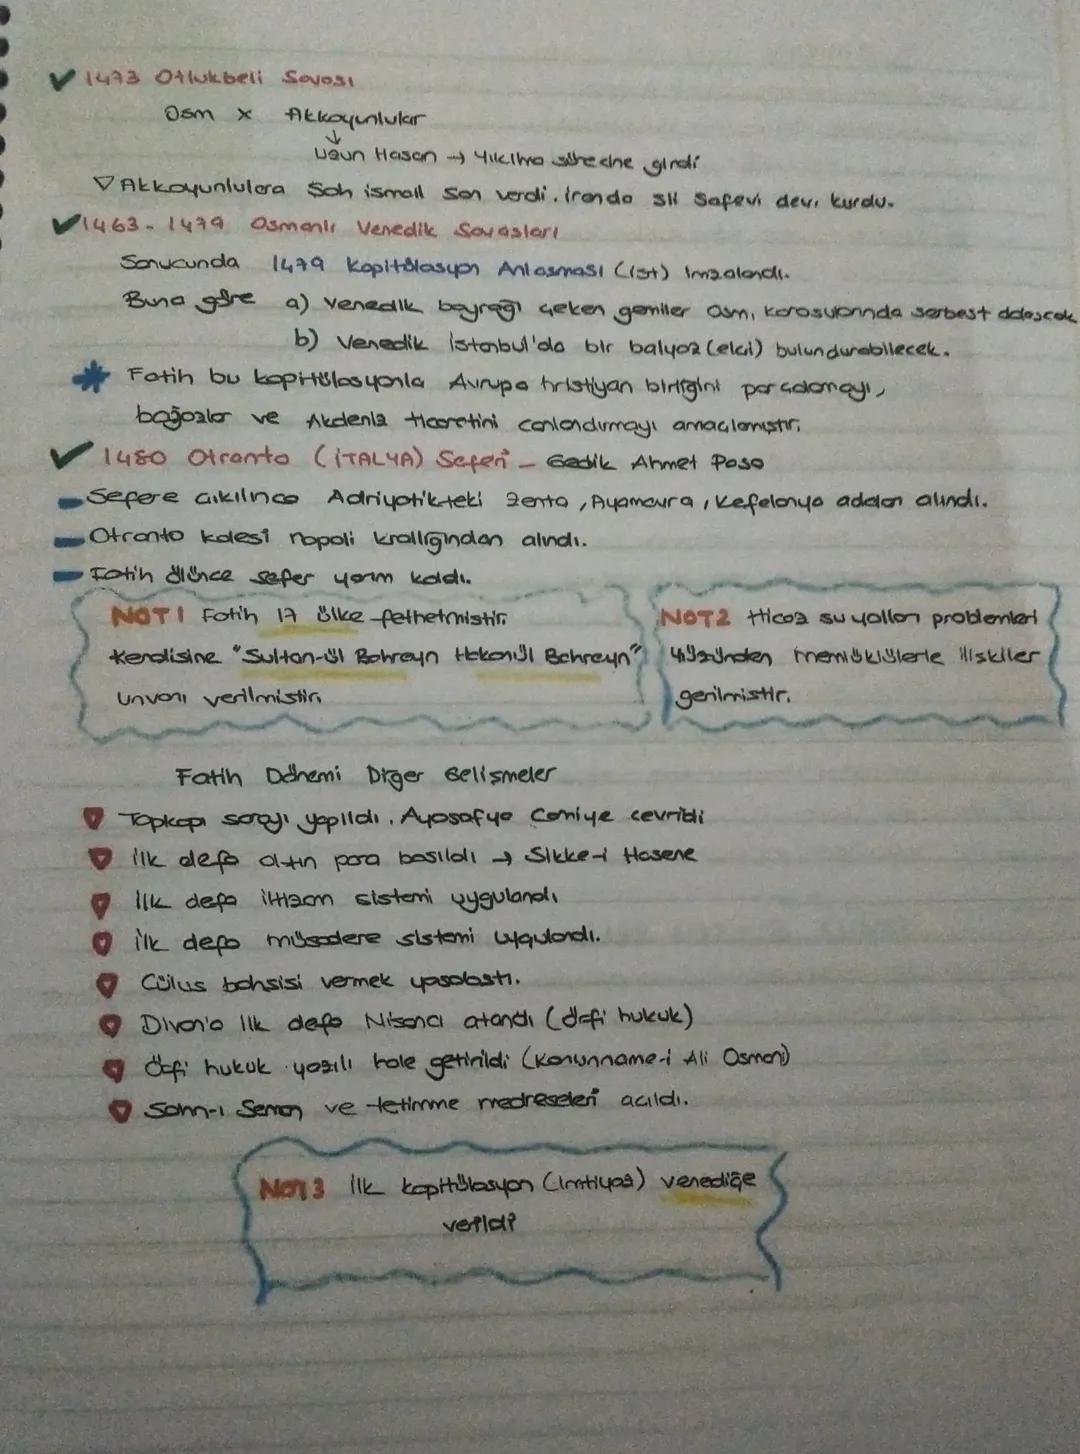 1473 Otlukbeli Savası
Osm x Akkoyunlular
↓
Uzun Hasan → Yıkılma sürecine girdi
▽ Akkoyunlulara Şah ismail son verdi. iranda Şii Safevi dev. kurdu.
1463-1479 Osmanlı Venedik Savasları
Sonucunda 1479 Kapitülasyon Anlasması (ist) imzalandı.
Buna göre a) Venedik bayrağı çeken gemiler Osm. karasularında serbest dolascak
b) Venedik istanbul'da bir balyoz (elci) bulundurabilecek.
* Fatih bu kapitülasyonla Avrupa hristiyan birliğini parcalamayı,
boğazlar ve Akdeniz ticaretini canlandırmayı amaclamıstır.
1480 Otranto (iTALYA) Seferi - Gedik Ahmet Pasa
- Sefere cıkılınca Adriyatikteki Zenta, Ayamavra, Kefelonya adaları alındı.
- Otranto kalesi napoli krallığından alındı.
- Fatih ölünce sefer yarım kaldı.
NOT1 Fatih 17 ülke fethetmistir.
Kendisine "Sultan-ül Bahreyn Hakanül Bahreyn"
unvanı verilmistir.
NOT2 Hicaz su yolları problemleri
yüzünden memlüklülerle iliskiler
gerilmistir.
Fatih Dönemi Diğer Gelişmeler
Topkapı sarayı yapıldı. Ayasofya Camiye cevrildi
ilk defa altın para basıldı → Sikke-i Hasene
ilk defa iltizam sistemi uygulandı
ilk defa müsadere sistemi uygulandı.
Cülus bahsisi vermek yasalastı.
Divan'a ilk defa Nisancı atandı (örfi hukuk)
Örfi hukuk yazılı hale getirildi (Kanunname-i Ali Osman)
Sahn-ı Seman ve tetimme medreseleri acıldı.
NOT3 ilk kapitülasyon (imtiyaz) venediğe
verildi